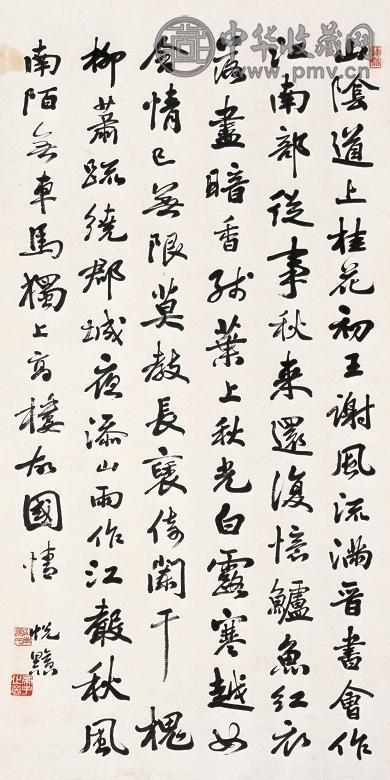 中华收藏网
www.pmv.cn
山陰道上桂花初王謝風流滿晉書會作
江南部從事秋來還復憶鱸魚紅衣
落盡暗香殘葉上秋光白露寒越女
含情已無限莫教長褏倚闌干 槐
柳蕭疏繞郡城夜添山雨作江聲秋風
南陌無車馬獨上高樓故國情